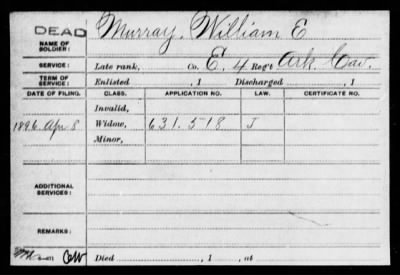 DEAD
NAME OF SOLDIER: Murray, William E
SERVICE: Late rank, Co. E. 4 Reg't Ark Cav.
TERM OF SERVICE: Enlisted , 1 Discharged , 1
DATE OF FILING. CLASS. APPLICATION NO. LAW. CERTIFICATE NO.
Invalid,
1896 Apr 8 Widow, 631.518 J
Minor,
ADDITIONAL SERVICES:
REMARKS:
Died , 1 , at